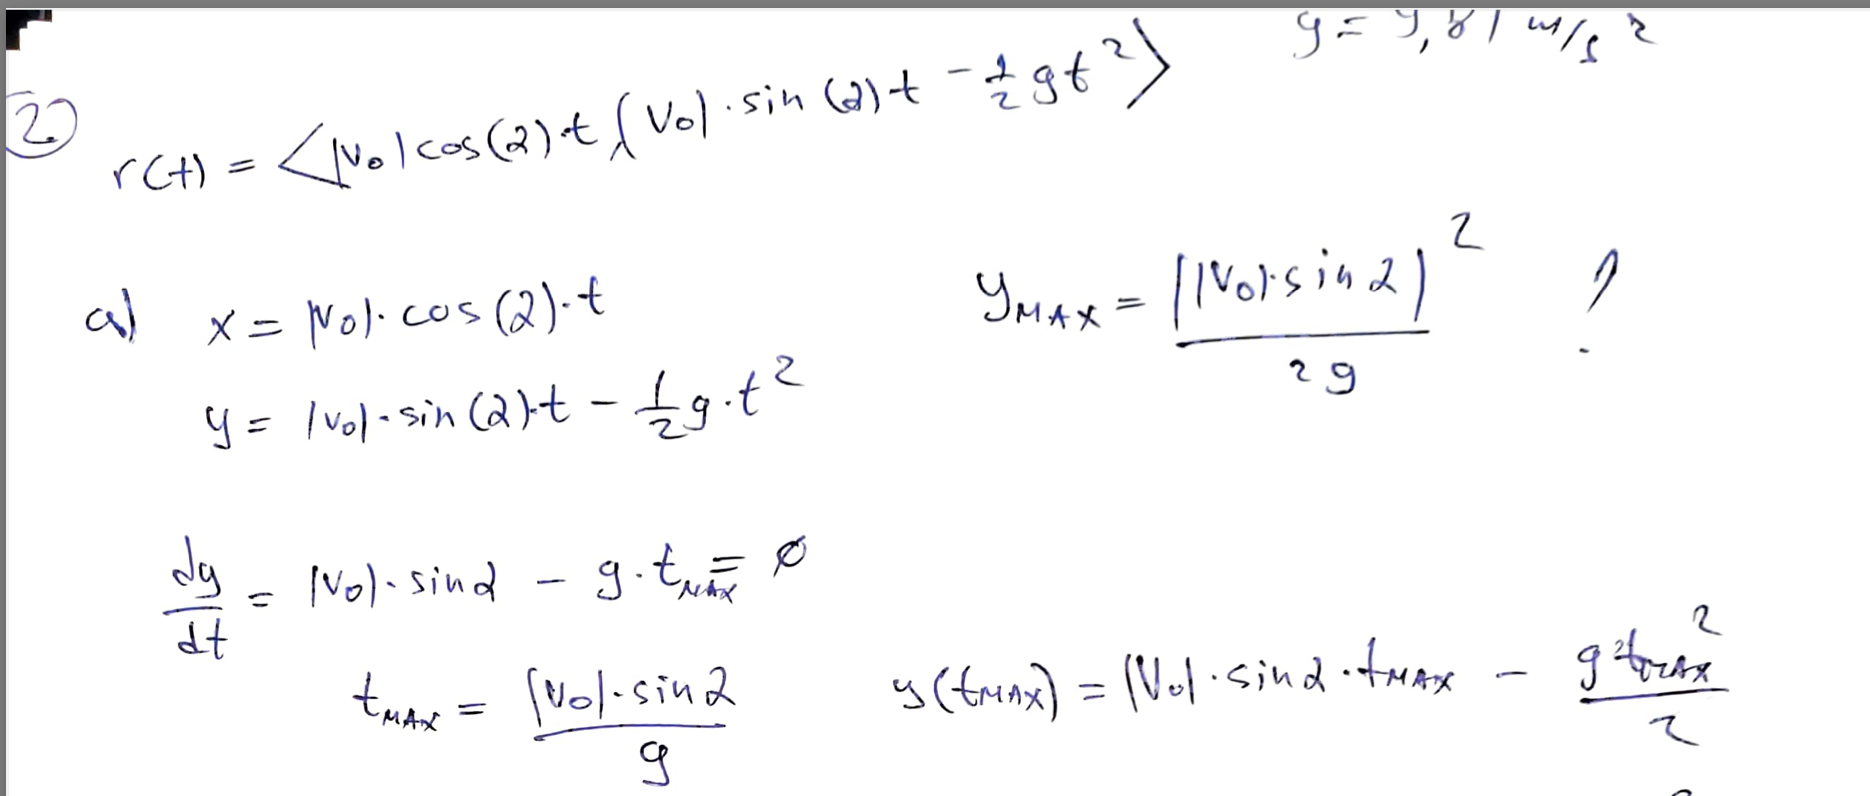 g = 9,81 m/s²
2) r(t) = <|v₀|cos(α)·t, |v₀|·sin(α)t - 1/2 gt²>
a) x = |v₀|·cos(α)·t
y_MAX = (|v₀|·sin α)² / 2g ?
y = |v₀|·sin(α)·t - 1/2 g·t²
dy/dt = |v₀|·sin α - g·t_MAX = 0
t_MAX = |v₀|·sin α / g
y(t_MAX) = |v₀|·sin α·t_MAX - g·t_MAX² / 2